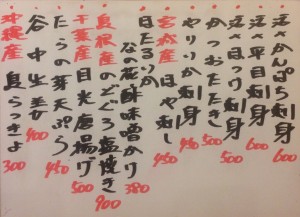 活かんぱち刺身 600
活平目刺身 600
活ほっけ刺身 500
かつおたたき 500
やりいか刺身 450
宮城産 ほや刺し 450
ほたるいか
なの花酢味噌かけ 380
島根産のどぐろ塩焼き 900
千葉産 目光唐揚げ 500
たらの芽天ぷら 450
谷中生姜 400
沖縄産 島らっきょ 300